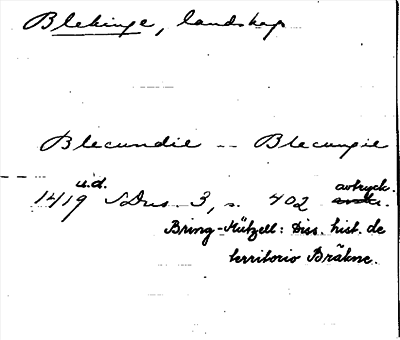 Blekinge, landskap
Blecundie -- Blecungie
u.d. avtryck.
1419 SDns 3, s. 402
Bring-Mützell: Diss. hist. de
territorio Bräkne.